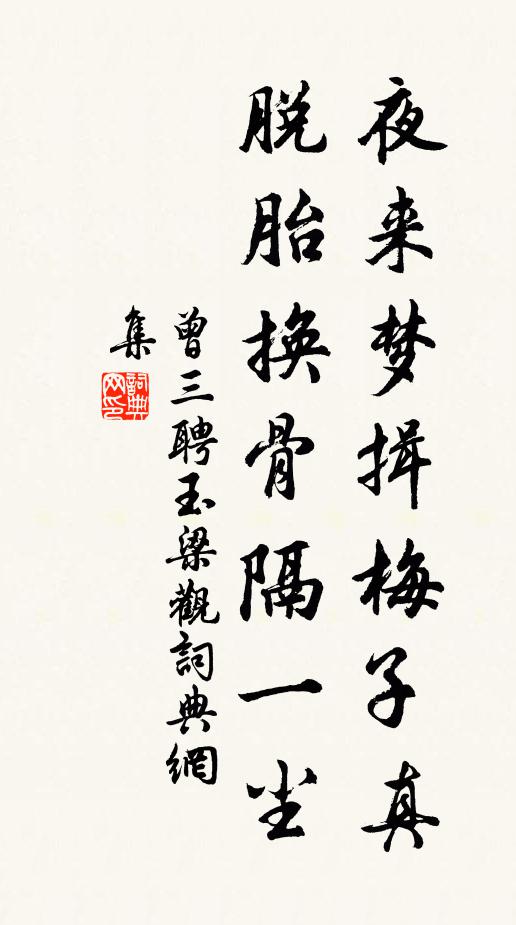 夜来梦揖梅子真
脱胎换骨隔一尘
曾三聘玉梁觀詞典網
集
詞典网印